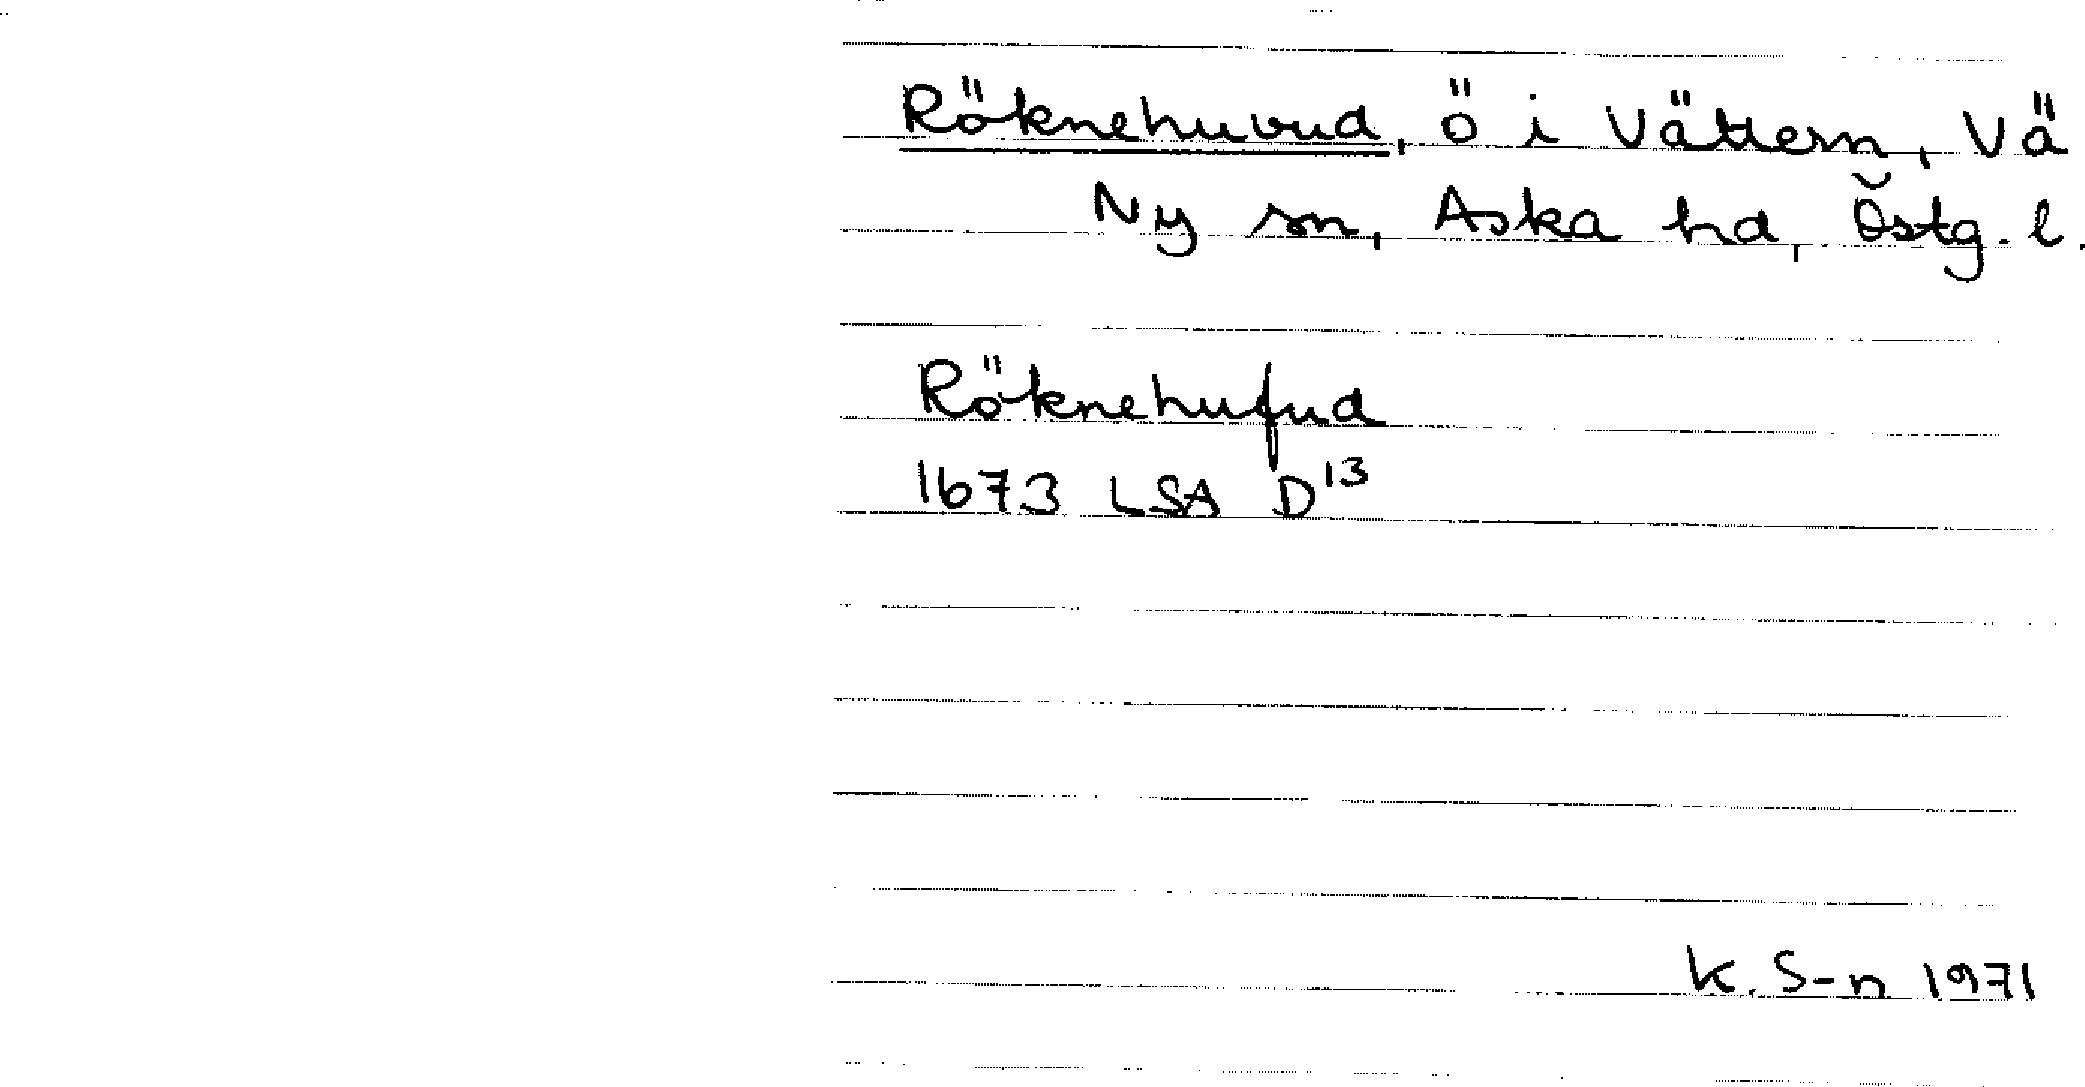 Röknehuvud, ö i Vättern, Vä
Ny sn, Aska hd, Östg. l.
Röknehufud
1673 LSA D¹³
K. S-n 1971